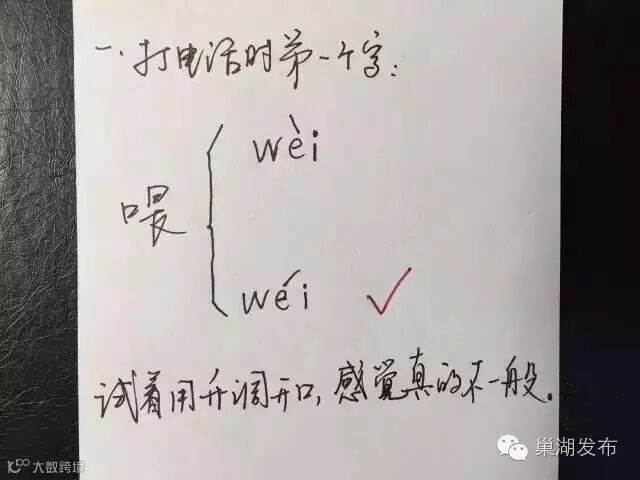 一.打电话时第一个字:
wèi
喂
wéi ✓
试着用升调开口,感觉真的不一般.
巢湖发布
大数跨境